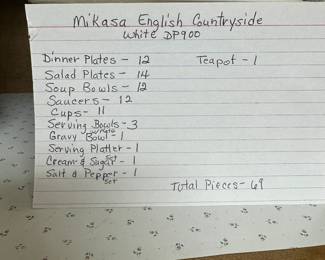 Mikasa English Countryside
White DP900
Dinner Plates - 12
Teapot - 1
Salad Plates - 14
Soup Bowls - 12
Saucers - 12
Cups - 11
Serving Bowls - 3
Gravy Bowl w/Plate - 1
Serving Platter - 1
Cream & Sugar Set - 1
Salt & Pepper Set - 1
Total Pieces - 69